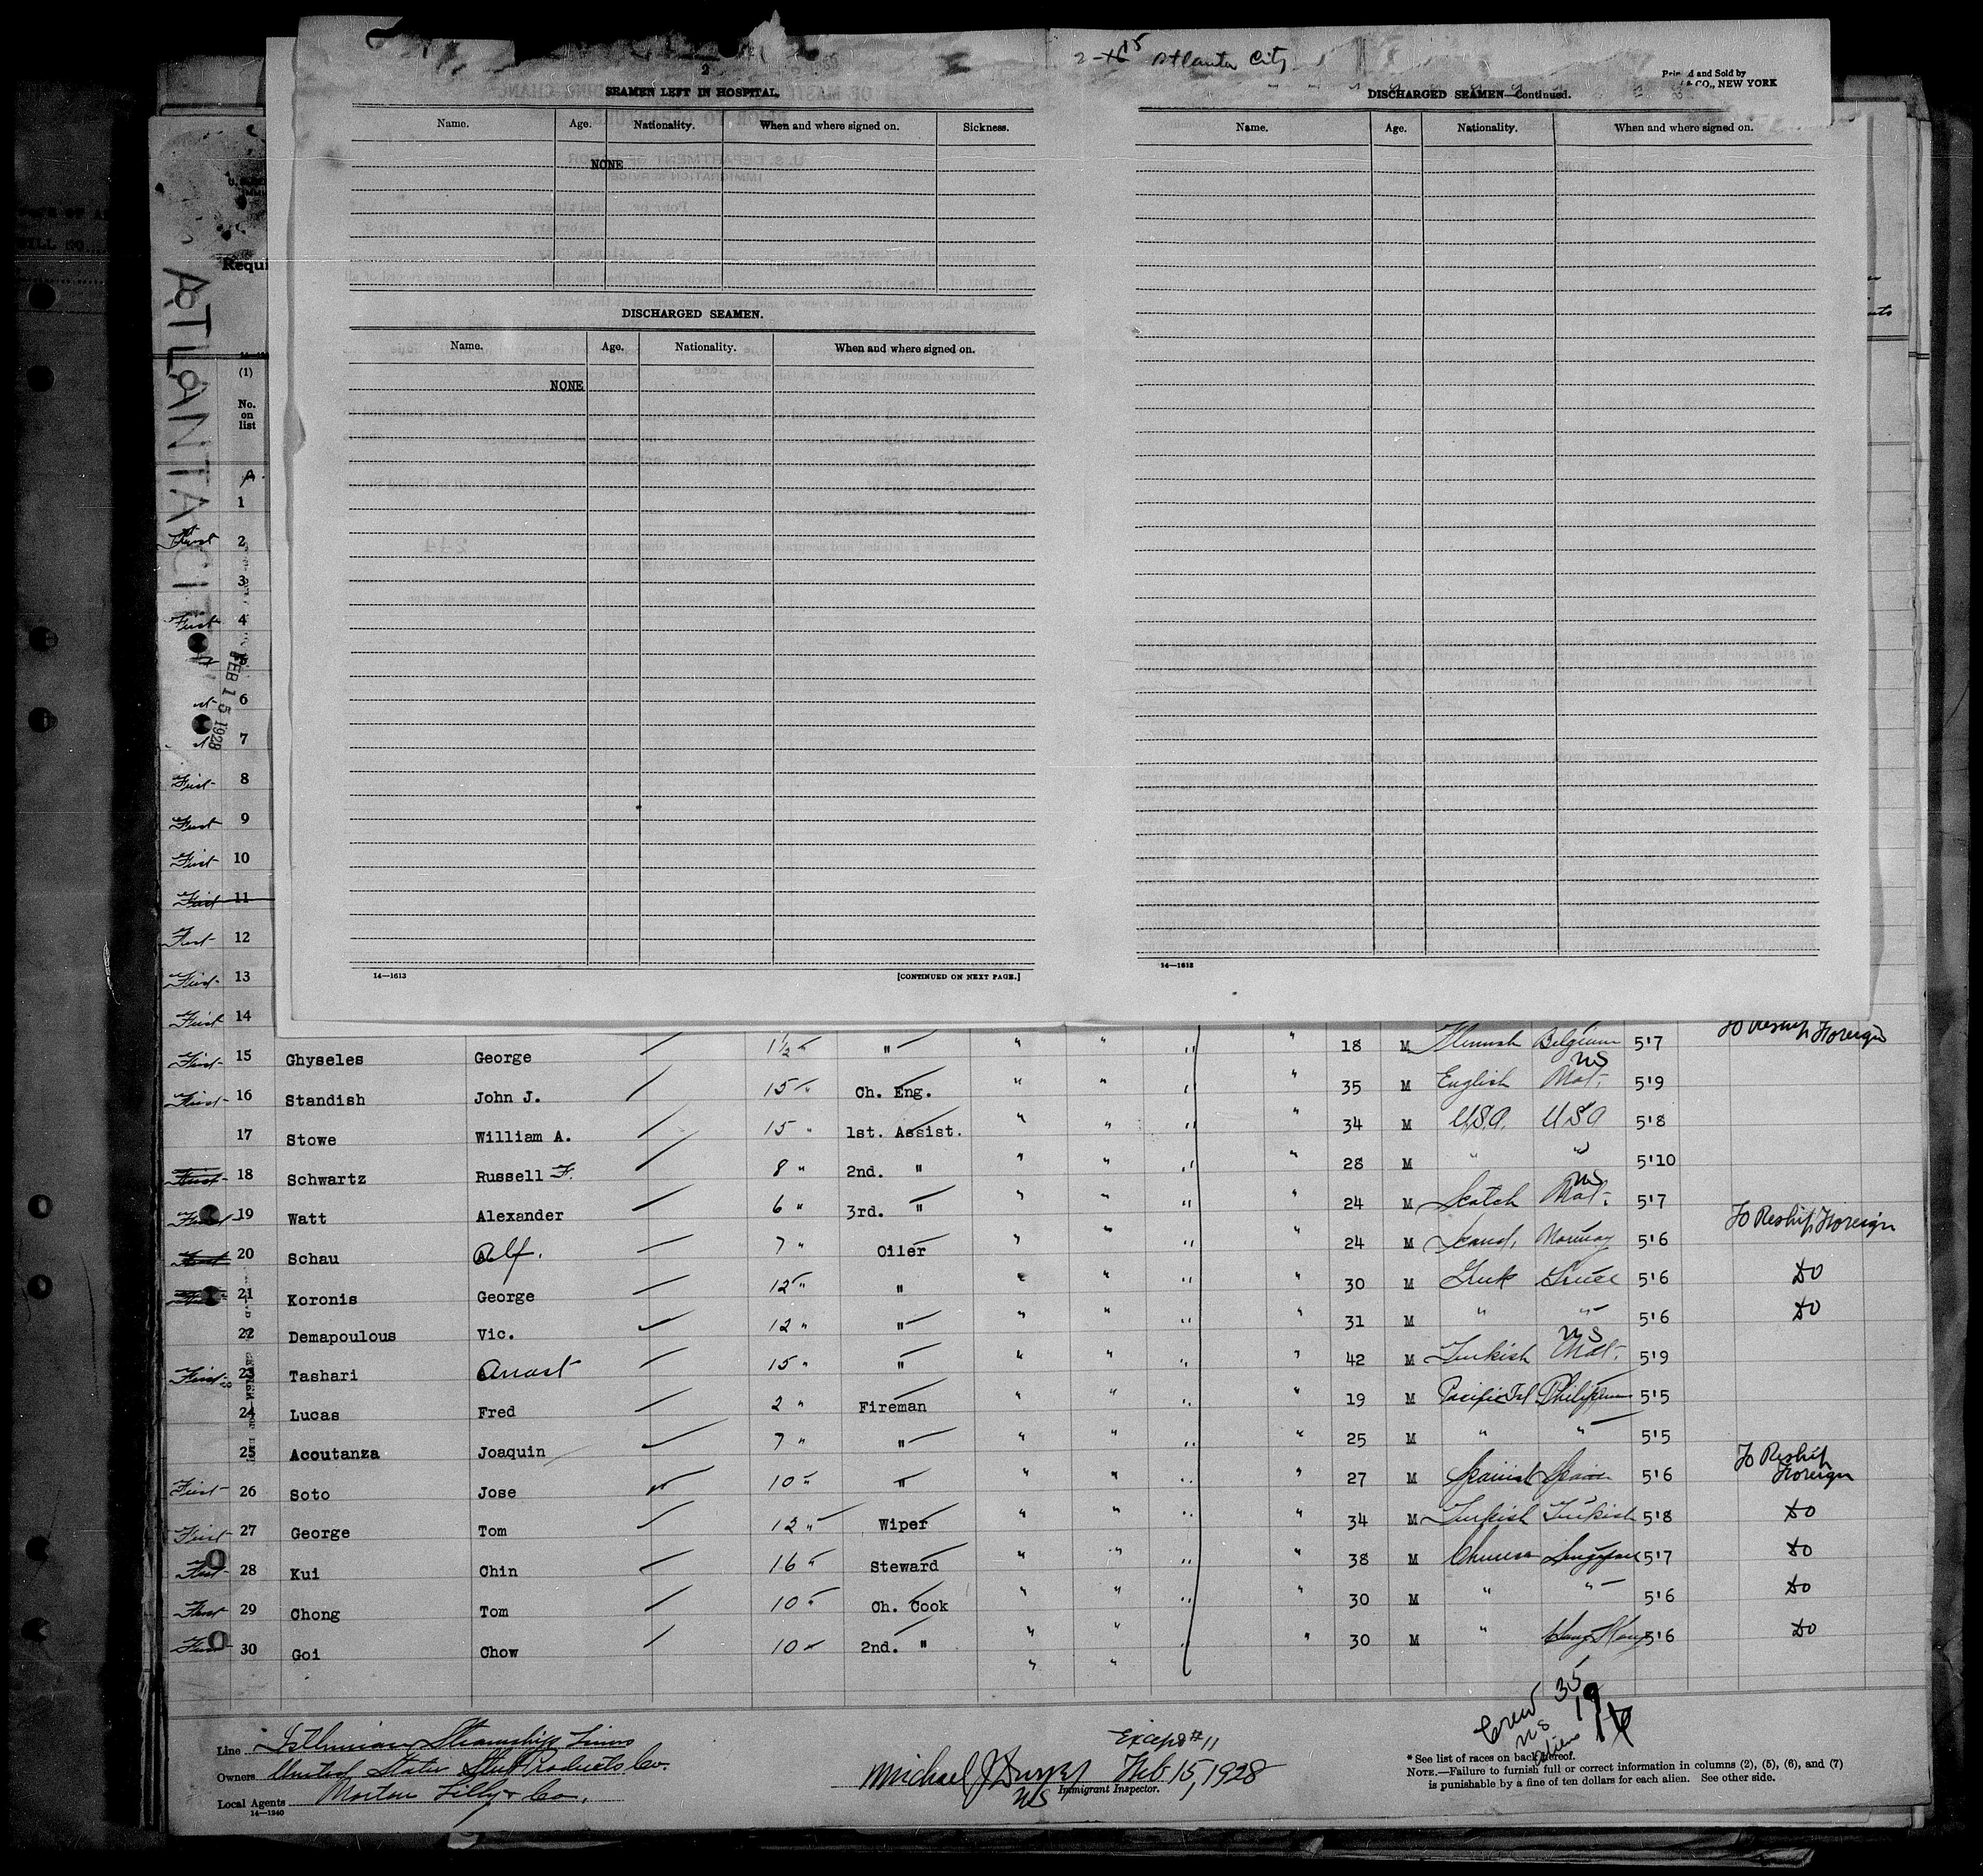 2-15 Atlanta City
Printed and Sold by
CO., NEW YORK
2
SEAMEN LEFT IN HOSPITAL.
Name. Age. Nationality. When and where signed on. Sickness.
NONE
DISCHARGED SEAMEN.
Name. Age. Nationality. When and where signed on.
NONE
14—1613 [CONTINUED ON NEXT PAGE.]
DISCHARGED SEAMEN—Continued.
Name. Age. Nationality. When and where signed on.
14—1613
ATLANTA CITY
FEB 15 1928
Requi
(1)
No.
on
list
1
First 2
3
First 4
5
6
7
First 8
First 9
First 10
First 11
First 12
First 13
First 14
To Reship Foreign
First 15 Ghyseles George 1½ " " " " " " 18 M Flemish Belgium 5'7
First 16 Standish John J. 15 " Ch. Eng. " " " " 35 M English US Nat. 5'9
17 Stowe William A. 15 " 1st. Assist. " " " " 34 M U.S.A. USA 5'8
First 18 Schwartz Russell F. 8 " 2nd. " " " " " 28 M " " 5'10
First 19 Watt Alexander 6 " 3rd. " " " " " 24 M Scotch US Nat. 5'7
First 20 Schau Alf. 7 " Oiler " " " " 24 M Scand. Norway 5'6 To Reship Foreign
First 21 Koronis George 12 " " " " " " 30 M Greek Greece 5'6 Do
22 Demapoulous Vic. 12 " " " " " " 31 M " " 5'6 Do
First 23 Tashari Anast 15 " " " " " " 42 M Turkish US Nat. 5'9
24 Lucas Fred 2 " Fireman " " " " 19 M Pacific Isl Philippine 5'5
25 Acoutanza Joaquin 7 " " " " " " 25 M " " 5'5
First 26 Soto Jose 10 " " " " " " 27 M Spanish Spain 5'6 To Reship Foreign
First 27 George Tom 12 " Wiper " " " " 34 M Turkish Turkish 5'8 Do
First 28 Kui Chin 16 " Steward " " " " 38 M Chinese Singapore 5'7 Do
First 29 Chong Tom 10 " Ch. Cook " " " " 30 M " " 5'6 Do
First 30 Goi Chow 10 " 2nd. " " " " " 30 M " Hong Kong 5'6 Do
" "
Crew 35
US 19
Aliens 16
Line Isthmian Steamship Lines
Owners United States Steel Products Co.
Local Agents Morton Lilly & Co.
14—1240
Except #11
Feb. 15, 1928
Michael J.
Immigrant Inspector.
* See list of races on back hereof.
NOTE.—Failure to furnish full or correct information in columns (2), (5), (6), and (7)
is punishable by a fine of ten dollars for each alien. See other side.